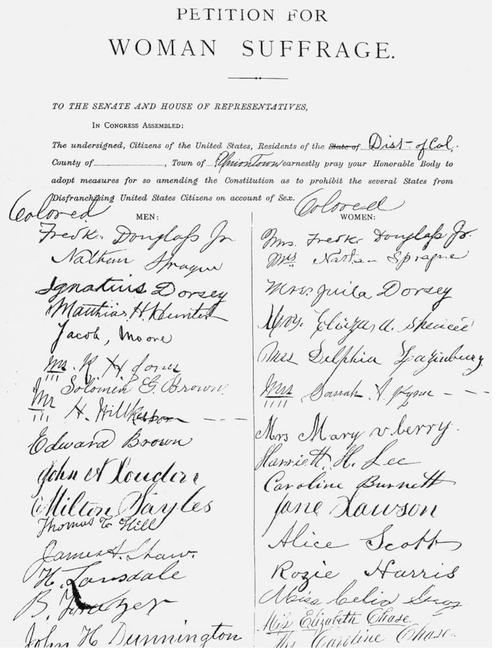 PETITION FOR
WOMAN SUFFRAGE.
TO THE SENATE AND HOUSE OF REPRESENTATIVES,
IN CONGRESS ASSEMBLED:
The undersigned, Citizens of the United States, Residents of the State of Dist- of Col.
County of, Town of Uniontown earnestly pray your Honorable Body to
adopt measures for so amending the Constitution as to prohibit the several States from
Disfranchising United States Citizens on account of Sex.
Colored MEN:
Fredk. Douglass Jr
Nathan Sprague
Ignatius Dorsey
Matthias H. Hunter
Jacob, Moore
Mr.
Solomon G. Brown
Mr H.
Edward Brown
John A
Milton Sayles
Thomas C Hill
James H. Shaw.
H. Lansdale
B.
John H Dunnington
Colored WOMEN:
Mrs. Fredk. Douglass Jr.
Mrs Nathan Sprague
Mrs. Dorsey
Mrs. Spencer
Miss Delphia
Mrs Sarah
Mrs Mary v. berry.
Harriett H. Lee
Caroline Burnett
Jane Lawson
Alice Scott
Rozie Harris
Miss Celia
Miss Elizabeth Chase
Mrs Caroline Chase.